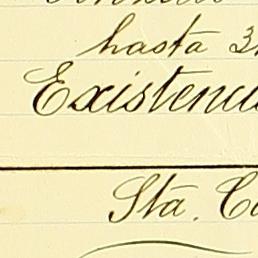 hasta 3
Existenci
Sta. C